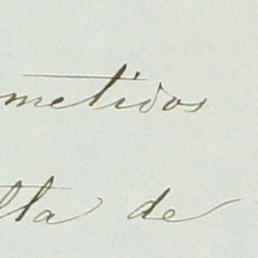 metidos
lta de